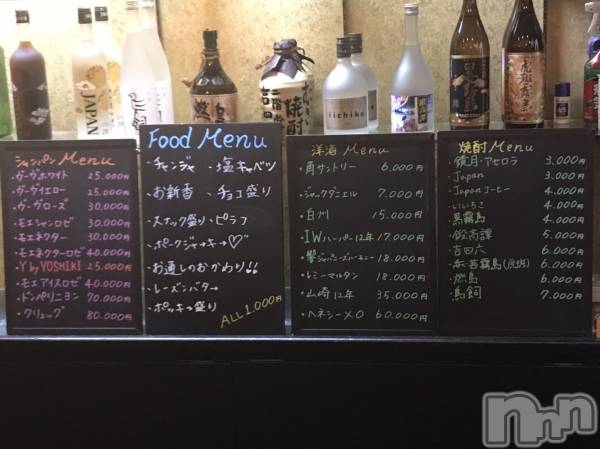 JAPAN
iichiko
シャンパン Menu
・ヴーヴホワイト 25.000円
・ヴーヴイエロー 25.000円
・ヴーヴローズ 30.000円
・モエシャンロゼ 30.000円
・モエネクター 30.000円
・モエネクターロゼ 40.000円
・Y by YOSHIKI 25.000円
・モエアイスロゼ 40.000円
・ドンペリニヨン 70.000円
・クリュッグ 80.000円
Food Menu
・チャンジャ ・塩キャベツ
・お新香 ・チョコ盛り
・スナック盛り ・ピラフ
・ポークジャーキー♡
・お通しのおかわり!!
・レーズンバター
・ポッキー盛り
ALL 1.000円
洋酒 Menu
・角サントリー 6.000円
・ジャックダニエル 7.000円
・白州 15.000円
・IWハーパー12年 17.000円
・響ジャパニーズハーモニー 18.000円
・レミーマルタン 18.000円
・山崎12年 35.000円
・ヘネシーXO 60.000円
焼酎 Menu
・鏡月・アセロラ 3.000円
・Japan 3.000円
・Japanコーヒー 4.000円
・いいちこ 4.000円
・黒霧島 4.000円
・鍛高譚 5.000円
・吉四六 6.000円
・赤・茜霧島(虎斑) 6.000円
・燃島 6.000円
・鳥飼 7.000円
nnn